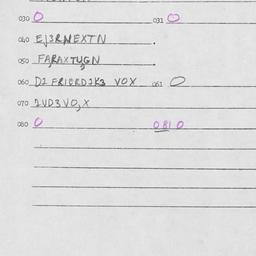 030 O 031 O
040 EJ3RNEXTN .
050 FARAXTUGN .
060 D2 FRIERDJK3 VOX 061 O
070 2UD3VO,X
080 O 081 O